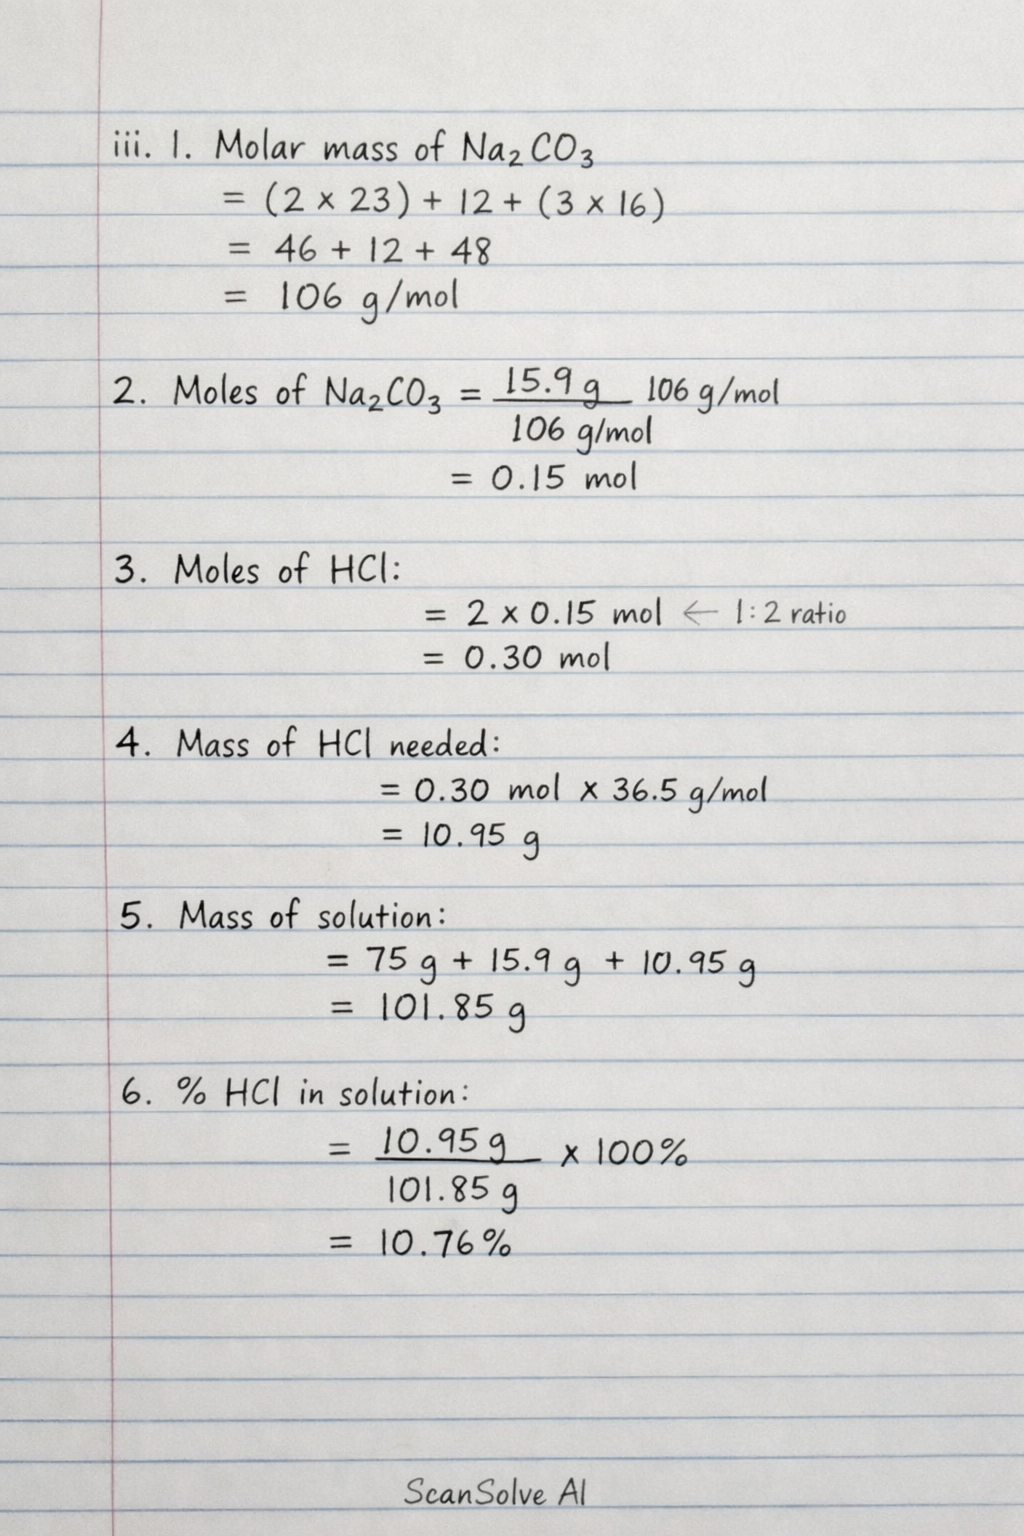 iii. 1. Molar mass of Na₂CO₃
= (2 × 23) + 12 + (3 × 16)
= 46 + 12 + 48
= 106 g/mol
2. Moles of Na₂CO₃ = 15.9 g 106 g/mol
106 g/mol
= 0.15 mol
3. Moles of HCl:
= 2 × 0.15 mol ← 1:2 ratio
= 0.30 mol
4. Mass of HCl needed:
= 0.30 mol × 36.5 g/mol
= 10.95 g
5. Mass of solution:
= 75 g + 15.9 g + 10.95 g
= 101.85 g
6. % HCl in solution:
= 10.95 g × 100%
101.85 g
= 10.76%
ScanSolve AI